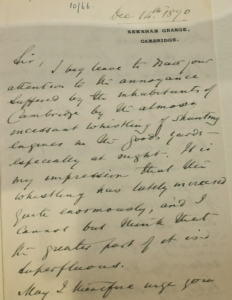 10/66
Dec 14th 1890
NEWNHAM GRANGE,
CAMBRIDGE.
Sir,
I beg leave to draw your
attention to the annoyance
suffered by the inhabitants of
Cambridge by the almost
incessant whistling of shunting
engines in the goods yards -
especially at night. It is
my impression that this
whistling has lately increased
quite enormously, and I
cannot but think that
the greater part of it is
superfluous.
May I therefore urge your